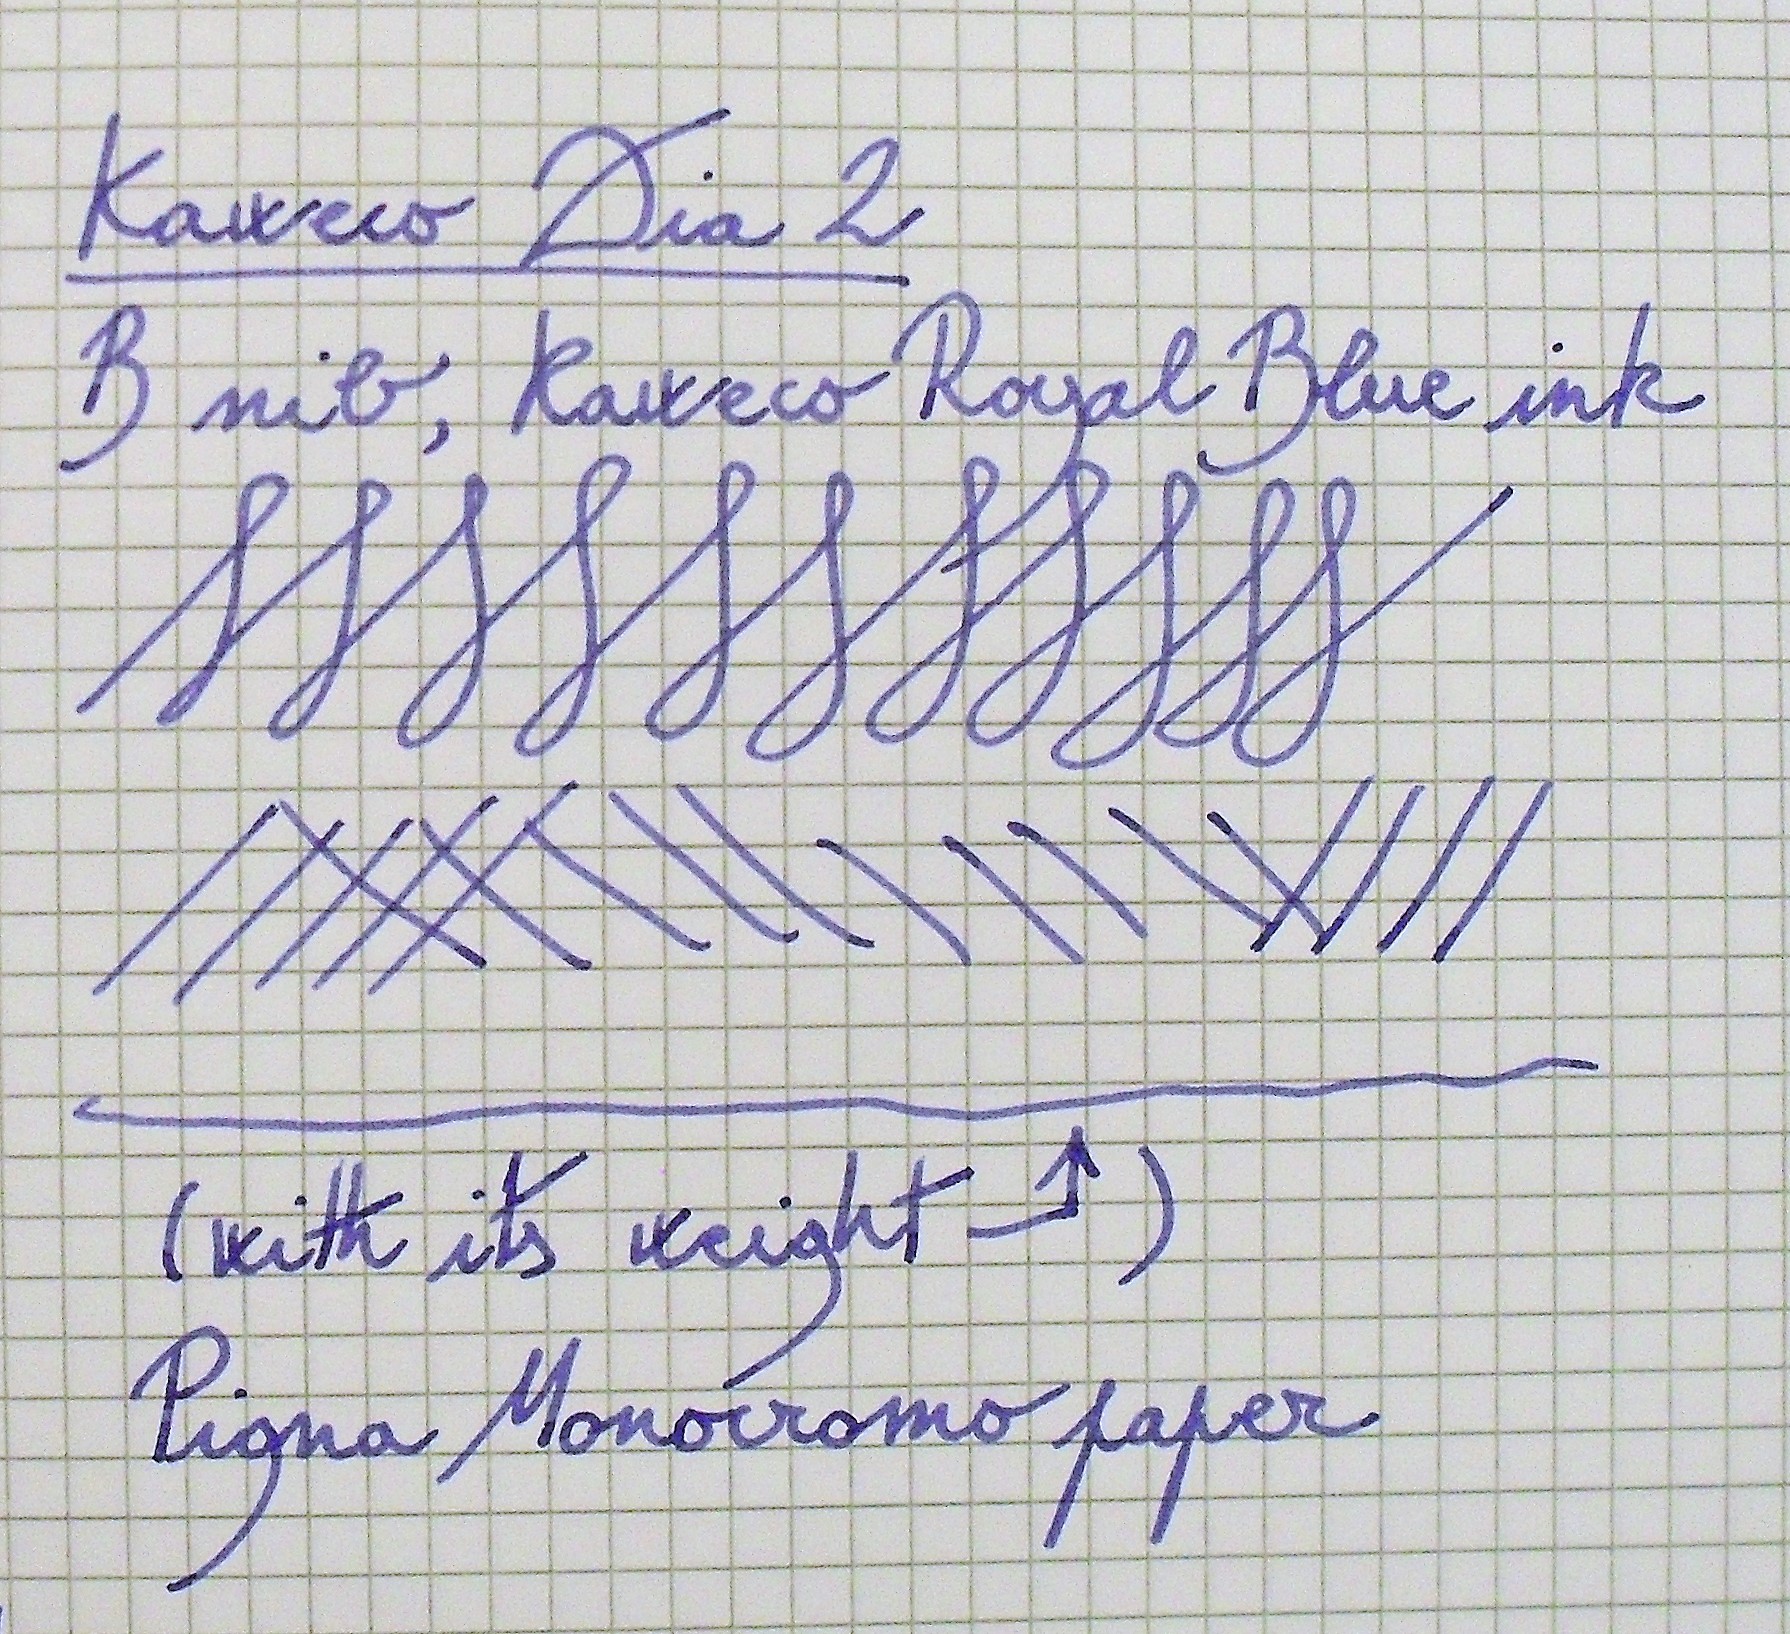 Kaweco Dia 2
B nib, Kaweco Royal Blue ink
(with its weight ↑)
Pigna Monocromo paper